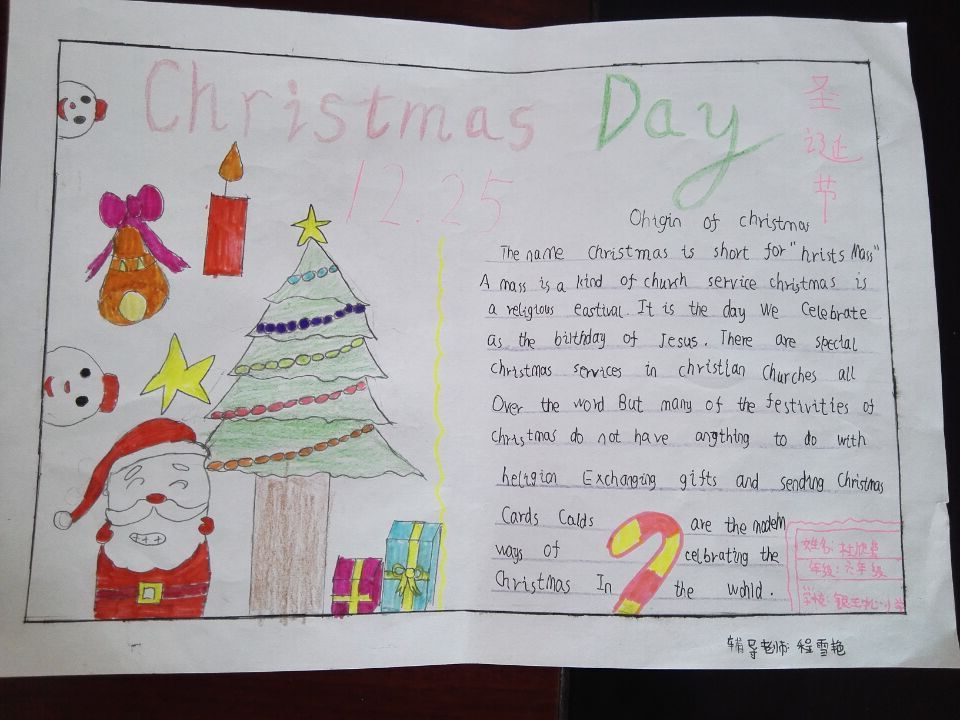 Christmas Day
圣诞节
12.25
Ohigin of christmas
The name Christmas is short for "hrists Mass"
A mass is a kind of church service christmas is
a religious eastival. It is the day we Celebrate
as the birthday of Jesus. There are special
christmas services in christian Churches all
Over the word But many of the festivities of
christmas do not have angthing to do with
heligion Exchanging gifts and sending Christmas
Cards Calds are the modern
ways of celbrating the
Christmas In the wohld.
姓名:杜
年级:六年级
学校:银王中心小学
辅导老师:程雪艳